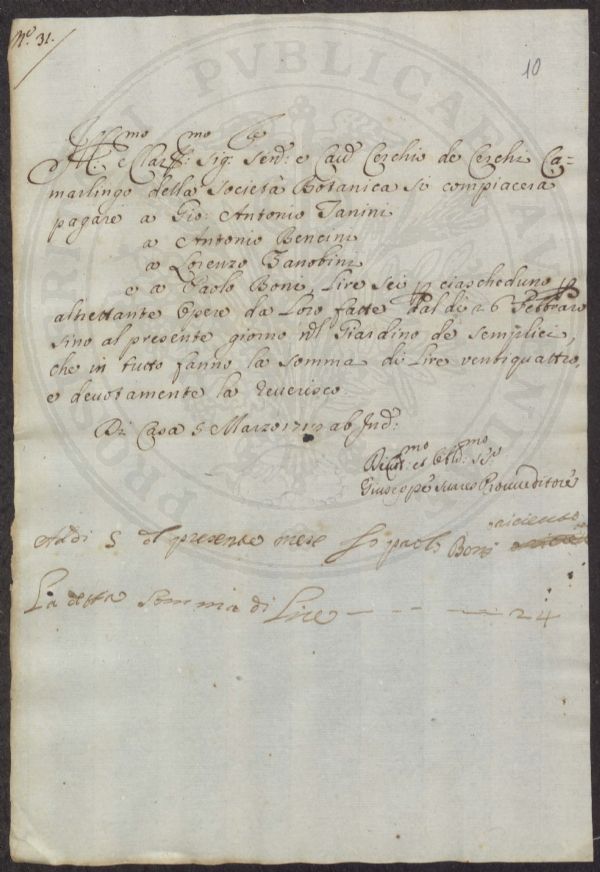 N.º 31.
10
Ill.mo e Clar.mo Sig.re Sen.e e Cav.e Cerchio de Cerchi Ca=
marlingo della Società Botanica si compiacerà
pagare a Gio: Antonio Janini
a Antonio Bencini
a Lorenzo Zanobini
e a Paolo Boni, Lire sei p ciascheduno p
altrettante Opere da Loro fatte dal dì 26 Febbraro
sino al presente giorno nel Giardino de Semplici,
che in tutto fanno la somma di Lire ventiquattro,
e devotamente la reverisco.
Di Casa 5 Marzo ab Ind:
Giuseppe Suares Provveditore
Adi 5 del presente mese Io paolo Boni
La detta somma di Lire — - - — 24